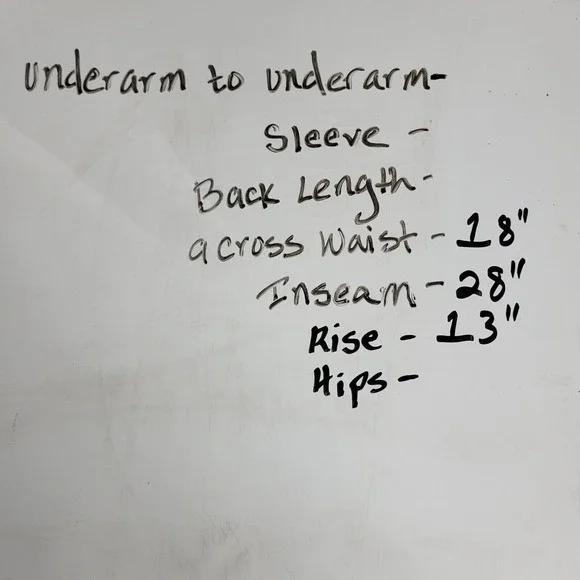 underarm to underarm-
Sleeve -
Back Length-
across Waist - 18"
Inseam - 28"
Rise - 13"
Hips -